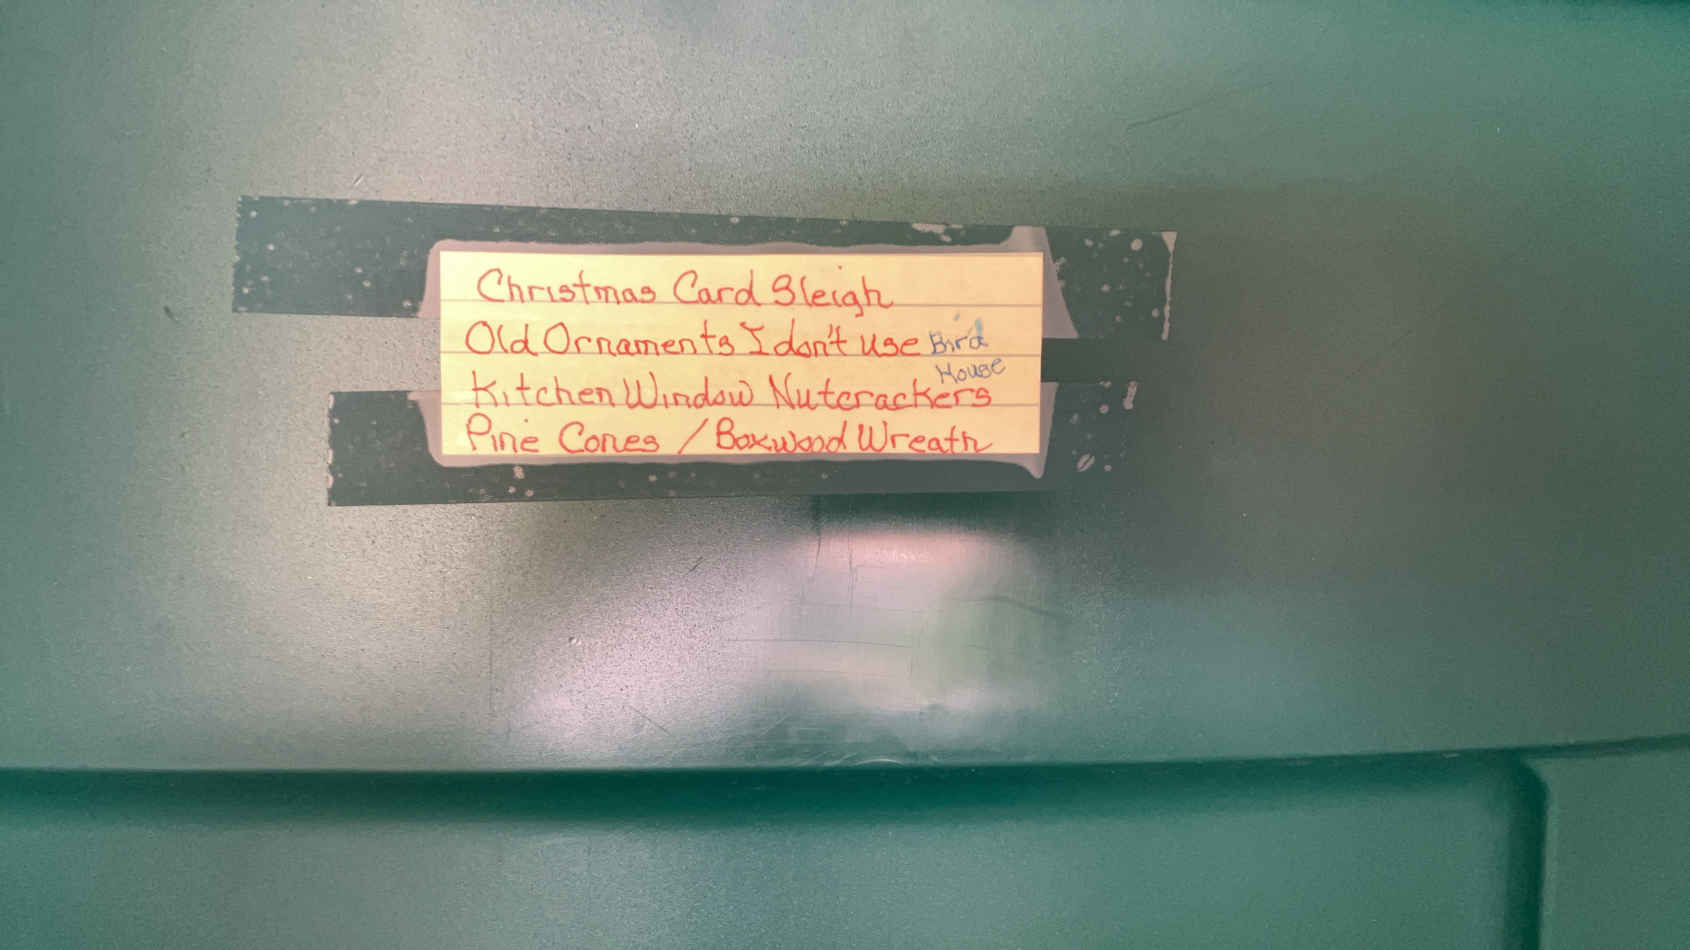 Christmas Card Sleigh
Old Ornaments I don't use Bird
House
Kitchen Window Nutcrackers
Pine Cones / Boxwood Wreath